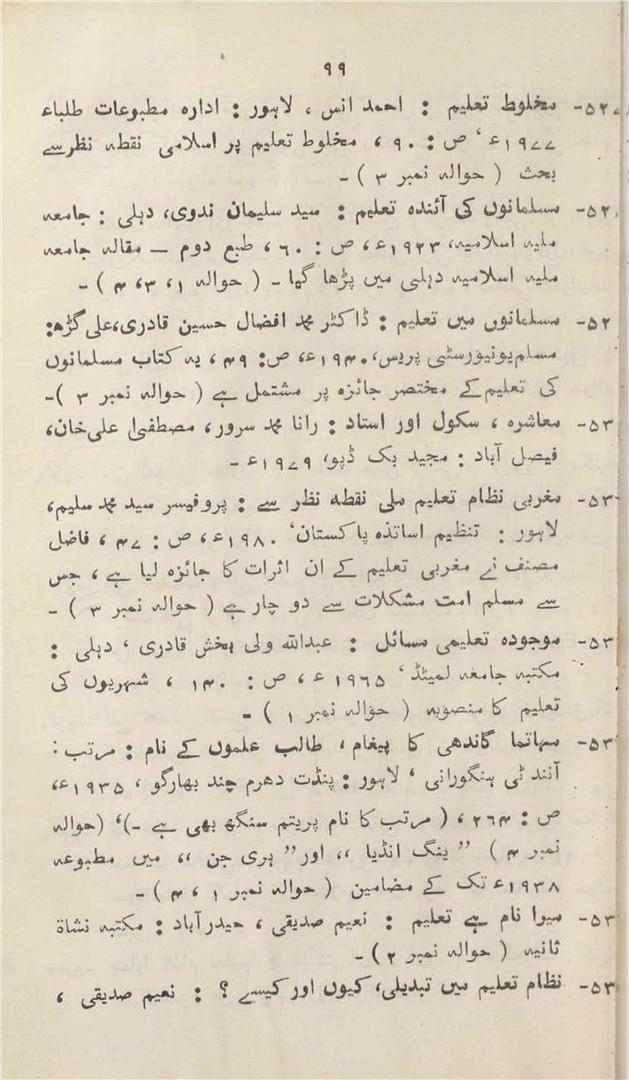 ۹۹
۵۲۷- مخلوط تعلیم : احمد انس ، لاہور : ادارہ مطبوعات طلباء
۱۹۷۷ء ، ص : ۹۰ ، مخلوط تعلیم پر اسلامی نقطہ نظر سے
بحث ( حوالہ نمبر ۳ ) -
۵۲- مسلمانوں کی آئندہ تعلیم : سید سلیمان ندوی، دہلی : جامعہ
ملیہ اسلامیہ، ۱۹۲۳ء، ص : ۶۰ ، طبع دوم — مقالہ جامعہ
ملیہ اسلامیہ دہلی میں پڑھا گیا - ( حوالہ ۱، ۳، ۴ ) -
۵۲- مسلمانوں میں تعلیم : ڈاکٹر محمد افضال حسین قادری، علی گڑھ:
مسلم یونیورسٹی پریس، ۱۹۴۰ء، ص: ۴۹ ، یہ کتاب مسلمانوں
کی تعلیم کے مختصر جائزہ پر مشتمل ہے ( حوالہ نمبر ۳ )-
۵۳- معاشرہ ، سکول اور استاد : رانا محمد سرور، مصطفیٰ علی خان،
فیصل آباد : مجید بک ڈپو، ۱۹۷۹ء -
۵۳- مغربی نظام تعلیم ملی نقطہ نظر سے : پروفیسر سید محمد سلیم،
لاہور : تنظیم اساتذہ پاکستان، ۱۹۸۰ء، ص : ۴۷ ، فاضل
مصنف نے مغربی تعلیم کے ان اثرات کا جائزہ لیا ہے ، جس
سے مسلم امت مشکلات سے دو چار ہے ( حوالہ نمبر ۳ ) -
۵۳- موجودہ تعلیمی مسائل : عبداللہ ولی بخش قادری ، دہلی :
مکتبہ جامعہ لمیٹڈ ، ۱۹۶۵ء ، ص : ۱۴۰ ، شہریوں کی
تعلیم کا منصوبہ ( حوالہ نمبر ۱ ) -
۵۳- مہاتما گاندھی کا پیغام، طالب علموں کے نام : مرتب :
آنند ٹی ہنگورانی ، لاہور : پنڈت دھرم چند بھارگو ، ۱۹۳۵ء،
ص : ۲۶۴ ، ( مرتب کا نام پریتم سنگھ بھی ہے -)، (حوالہ
نمبر ۴ ) ” ینگ انڈیا ،، اور ” ہری جن ،، میں مطبوعہ
۱۹۳۸ء تک کے مضامین ( حوالہ نمبر ۱ ، ۴ ) -
۵۳- میرا نام ہے تعلیم : نعیم صدیقی ، حیدر آباد : مکتبہ نشاۃ
ثانیہ ( حوالہ نمبر ۲ ) -
۵۳- نظام تعلیم میں تبدیلی، کیوں اور کیسے ؟ : نعیم صدیقی ،